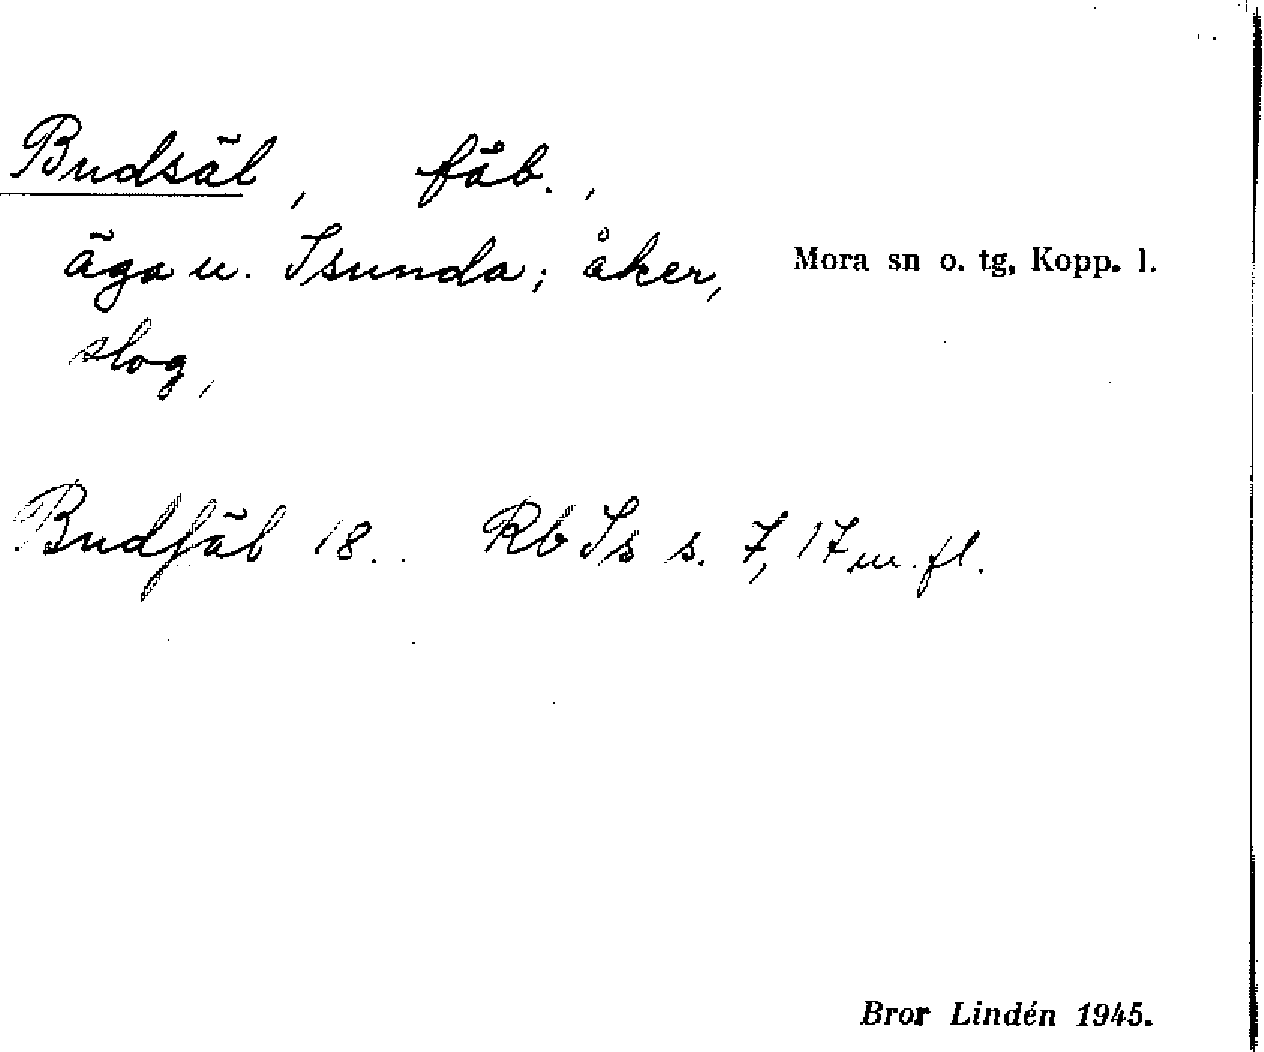 Budsäl, fäb.,
äga u. Isunda; åker,
Mora sn o. tg, Kopp. l.
slog,
Budſäl 18.. Rb Is s. 7, 17 m. fl.
Bror Lindén 1945.